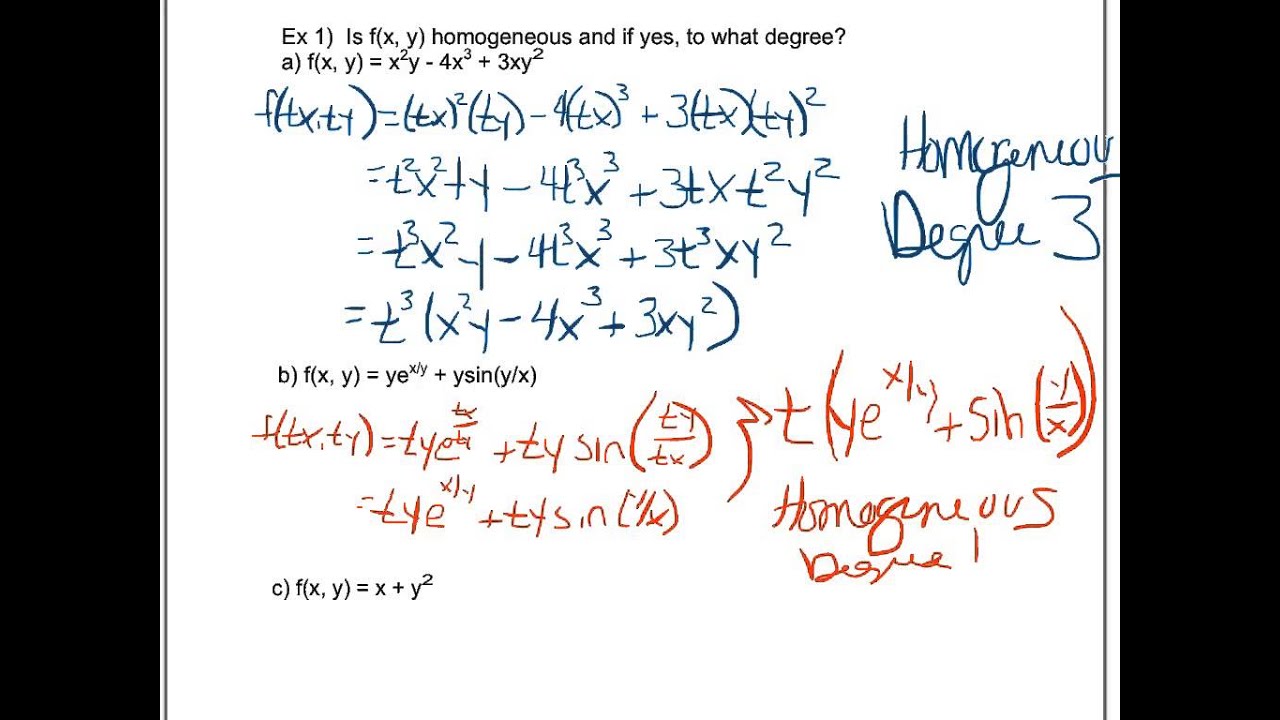 Ex 1) Is f(x, y) homogeneous and if yes, to what degree?
a) f(x, y) = x²y - 4x³ + 3xy²
f(tx,ty)=(tx)²(ty) - 4(tx)³ + 3(tx)(ty)²
= t²x²ty - 4t³x³ + 3txt²y²
= t³x²y - 4t³x³ + 3t³xy²
= t³(x²y - 4x³ + 3xy²)
Homogeneous
Degree 3
b) f(x, y) = ye^x/y + ysin(y/x)
f(tx,ty)=tye^tx/ty + ty sin(ty/tx) } t(ye^x/y + sin(y/x))
= tye^x/y + ty sin(y/x)
Homogeneous
Degree 1
c) f(x, y) = x + y²